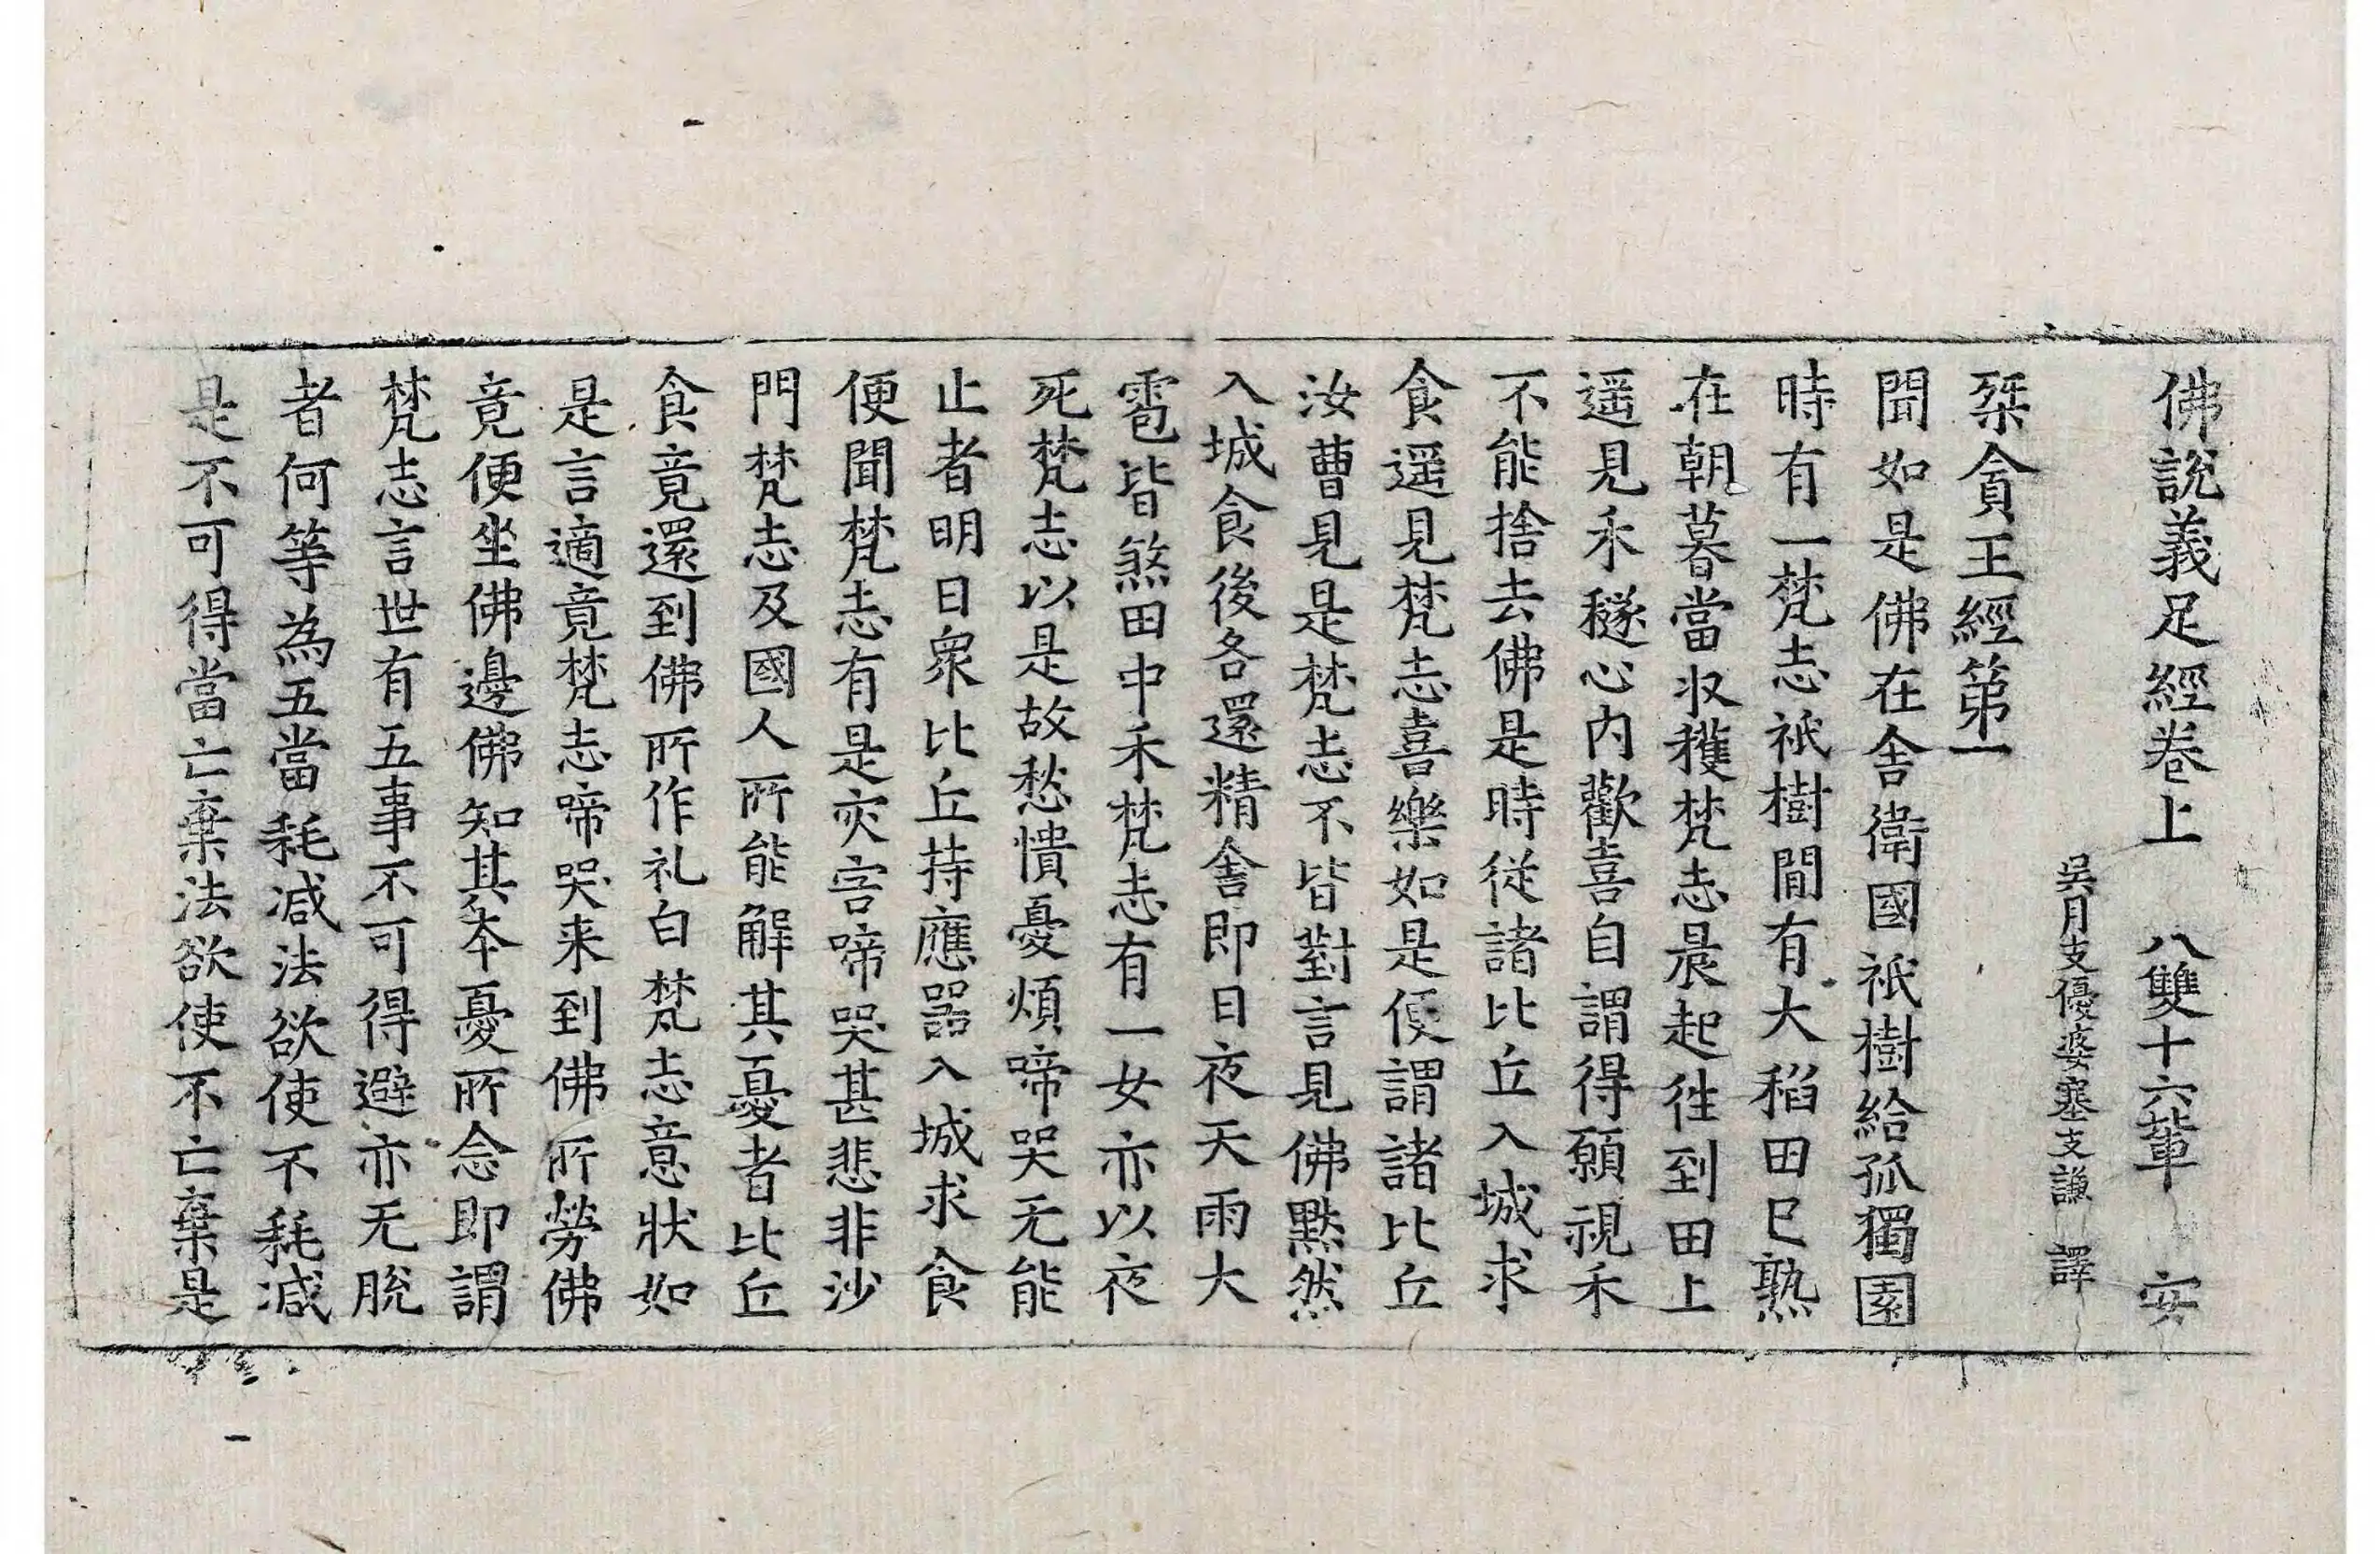 佛說義足經卷上 八雙十六軰 安
吳月支優婆塞支謙 譯
桀貪王經第一
聞如是佛在舍衛國祇樹給孤獨園
時有一梵志祇樹間有大稻田已熟
在朝暮當收穫梵志晨起往到田上
遥見禾穟心内歡喜自謂得願視禾
不能捨去佛是時從諸比丘入城求
食遥見梵志喜樂如是便謂諸比丘
汝曹見是梵志不皆對言見佛黙然
入城食後各還精舍即日夜天雨大
雹皆煞田中禾梵志有一女亦以夜
死梵志以是故愁憒憂煩啼哭无能
止者明日衆比丘持應器入城求食
便聞梵志有是灾害啼哭甚悲非沙
門梵志及國人所能解其憂者比丘
食竟還到佛所作礼白梵志意狀如
是言適竟梵志啼哭来到佛所勞佛
竟便坐佛邊佛知其本憂所念即謂
梵志言世有五事不可得避亦无脫
者何等為五當耗减法欲使不耗减
是不可得當亡棄法欲使不亡棄是